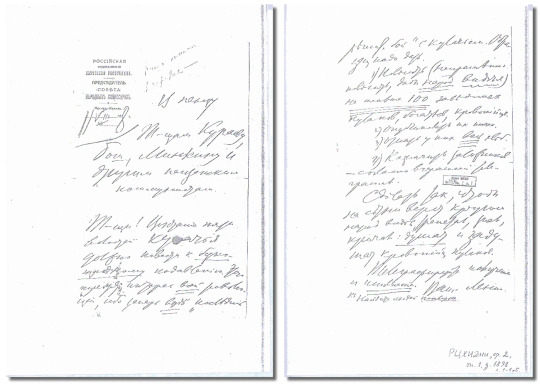 РОССИЙСКАЯ
СОВЕТСКАЯ РЕСПУБЛИКА
ПРЕДСЕДАТЕЛЬ
СОВЕТА
НАРОДНЫХ КОМИССАРОВ
В Пензу
Т-щам Кураеву,
Бош, Минкину и
другим пензенским
коммунистам.
Т-щи! Восстание пяти
волостей кулачья
должно повести к беспо-
щадному подавлению.
требует интерес всей револю-
ции, ибо теперь взят "последний
решит. бой" с кулачьем. Обра-
зец надо дать.
1) Повесить (непременно
повесить, дабы народ видел)
не меньше 100 заведомых
кулаков, богатеев, кровопийц.
2) Опубликовать их имена.
3) Отнять у них весь хлеб.
4) Назначить заложников
— согласно вчерашней теле-
грамме.
Сделать так, чтобы
на сотни верст кругом
народ видел, трепетал, знал,
кричал: душат и заду-
шат кровопийц кулаков.
Телеграфируйте получение
и исполнение. Ваш Ленин.
РЦХИДНИ, ф. 2,